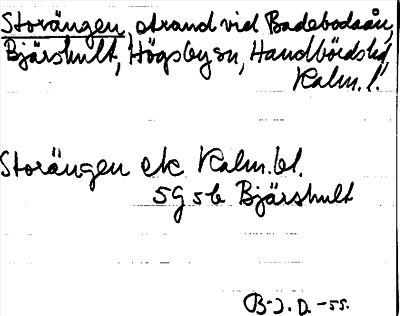 Storängen, strand vid Badebodaån,
Bjärshult, Högsby sn, Handbörds hd,
Kalm. l.
Storängen ek Kalm. bl.
5G 5b Bjärshult
B-J. D. -55.